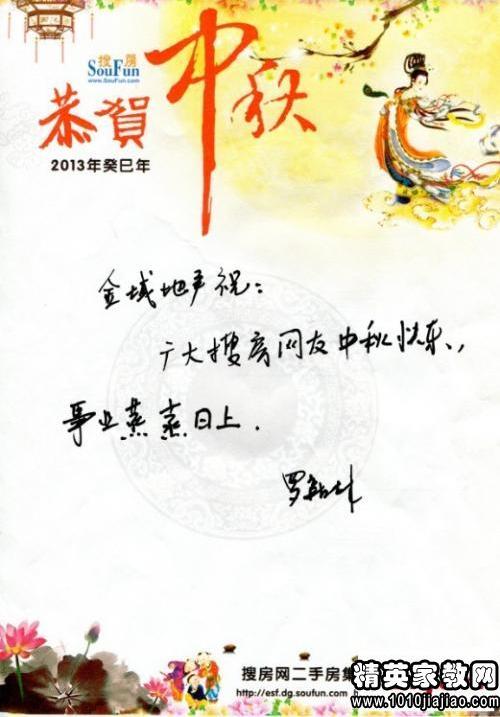 搜房
SouFun
www.SouFun.com
恭贺
中秋
2013年癸巳年
金域地产祝：
广大搜房网友中秋快乐，
事业蒸蒸日上.
搜房网二手房集
http://esf.dg.soufun.com
精英家教网
www.1010jiajiao.com